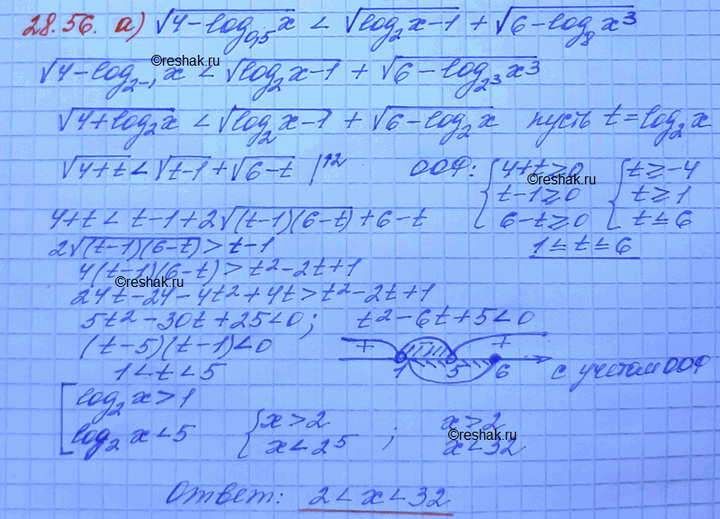 28.56. а) √(4-log₀,₅x) < √(log₂x-1) + √(6-log₈x³)
©reshak.ru
√(4-log₂₋₁x) < √(log₂x-1) + √(6-log₂³x³)
√(4+log₂x) < √(log₂x-1) + √(6-log₂x) пусть t=log₂x
√(4+t) < √(t-1) + √(6-t) |↑2 ООФ: {4+t≥0 {t≥-4
©reshak.ru
t-1≥0 t≥1
4+t < t-1+2√((t-1)(6-t))+6-t 6-t≥0 t≤6
2√((t-1)(6-t)) > t-1 1≤t≤6
4(t-1)(6-t) > t²-2t+1
©reshak.ru
24t-24-4t²+4t > t²-2t+1
5t²-30t+25<0; t²-6t+5<0
(t-5)(t-1)<0 + + 1 5 6 с учетом ООФ
1<t<5
[log₂x>1 {x>2 ; x>2
©reshak.ru
log₂x<5 x<2⁵ x<32
Ответ: 2<x<32